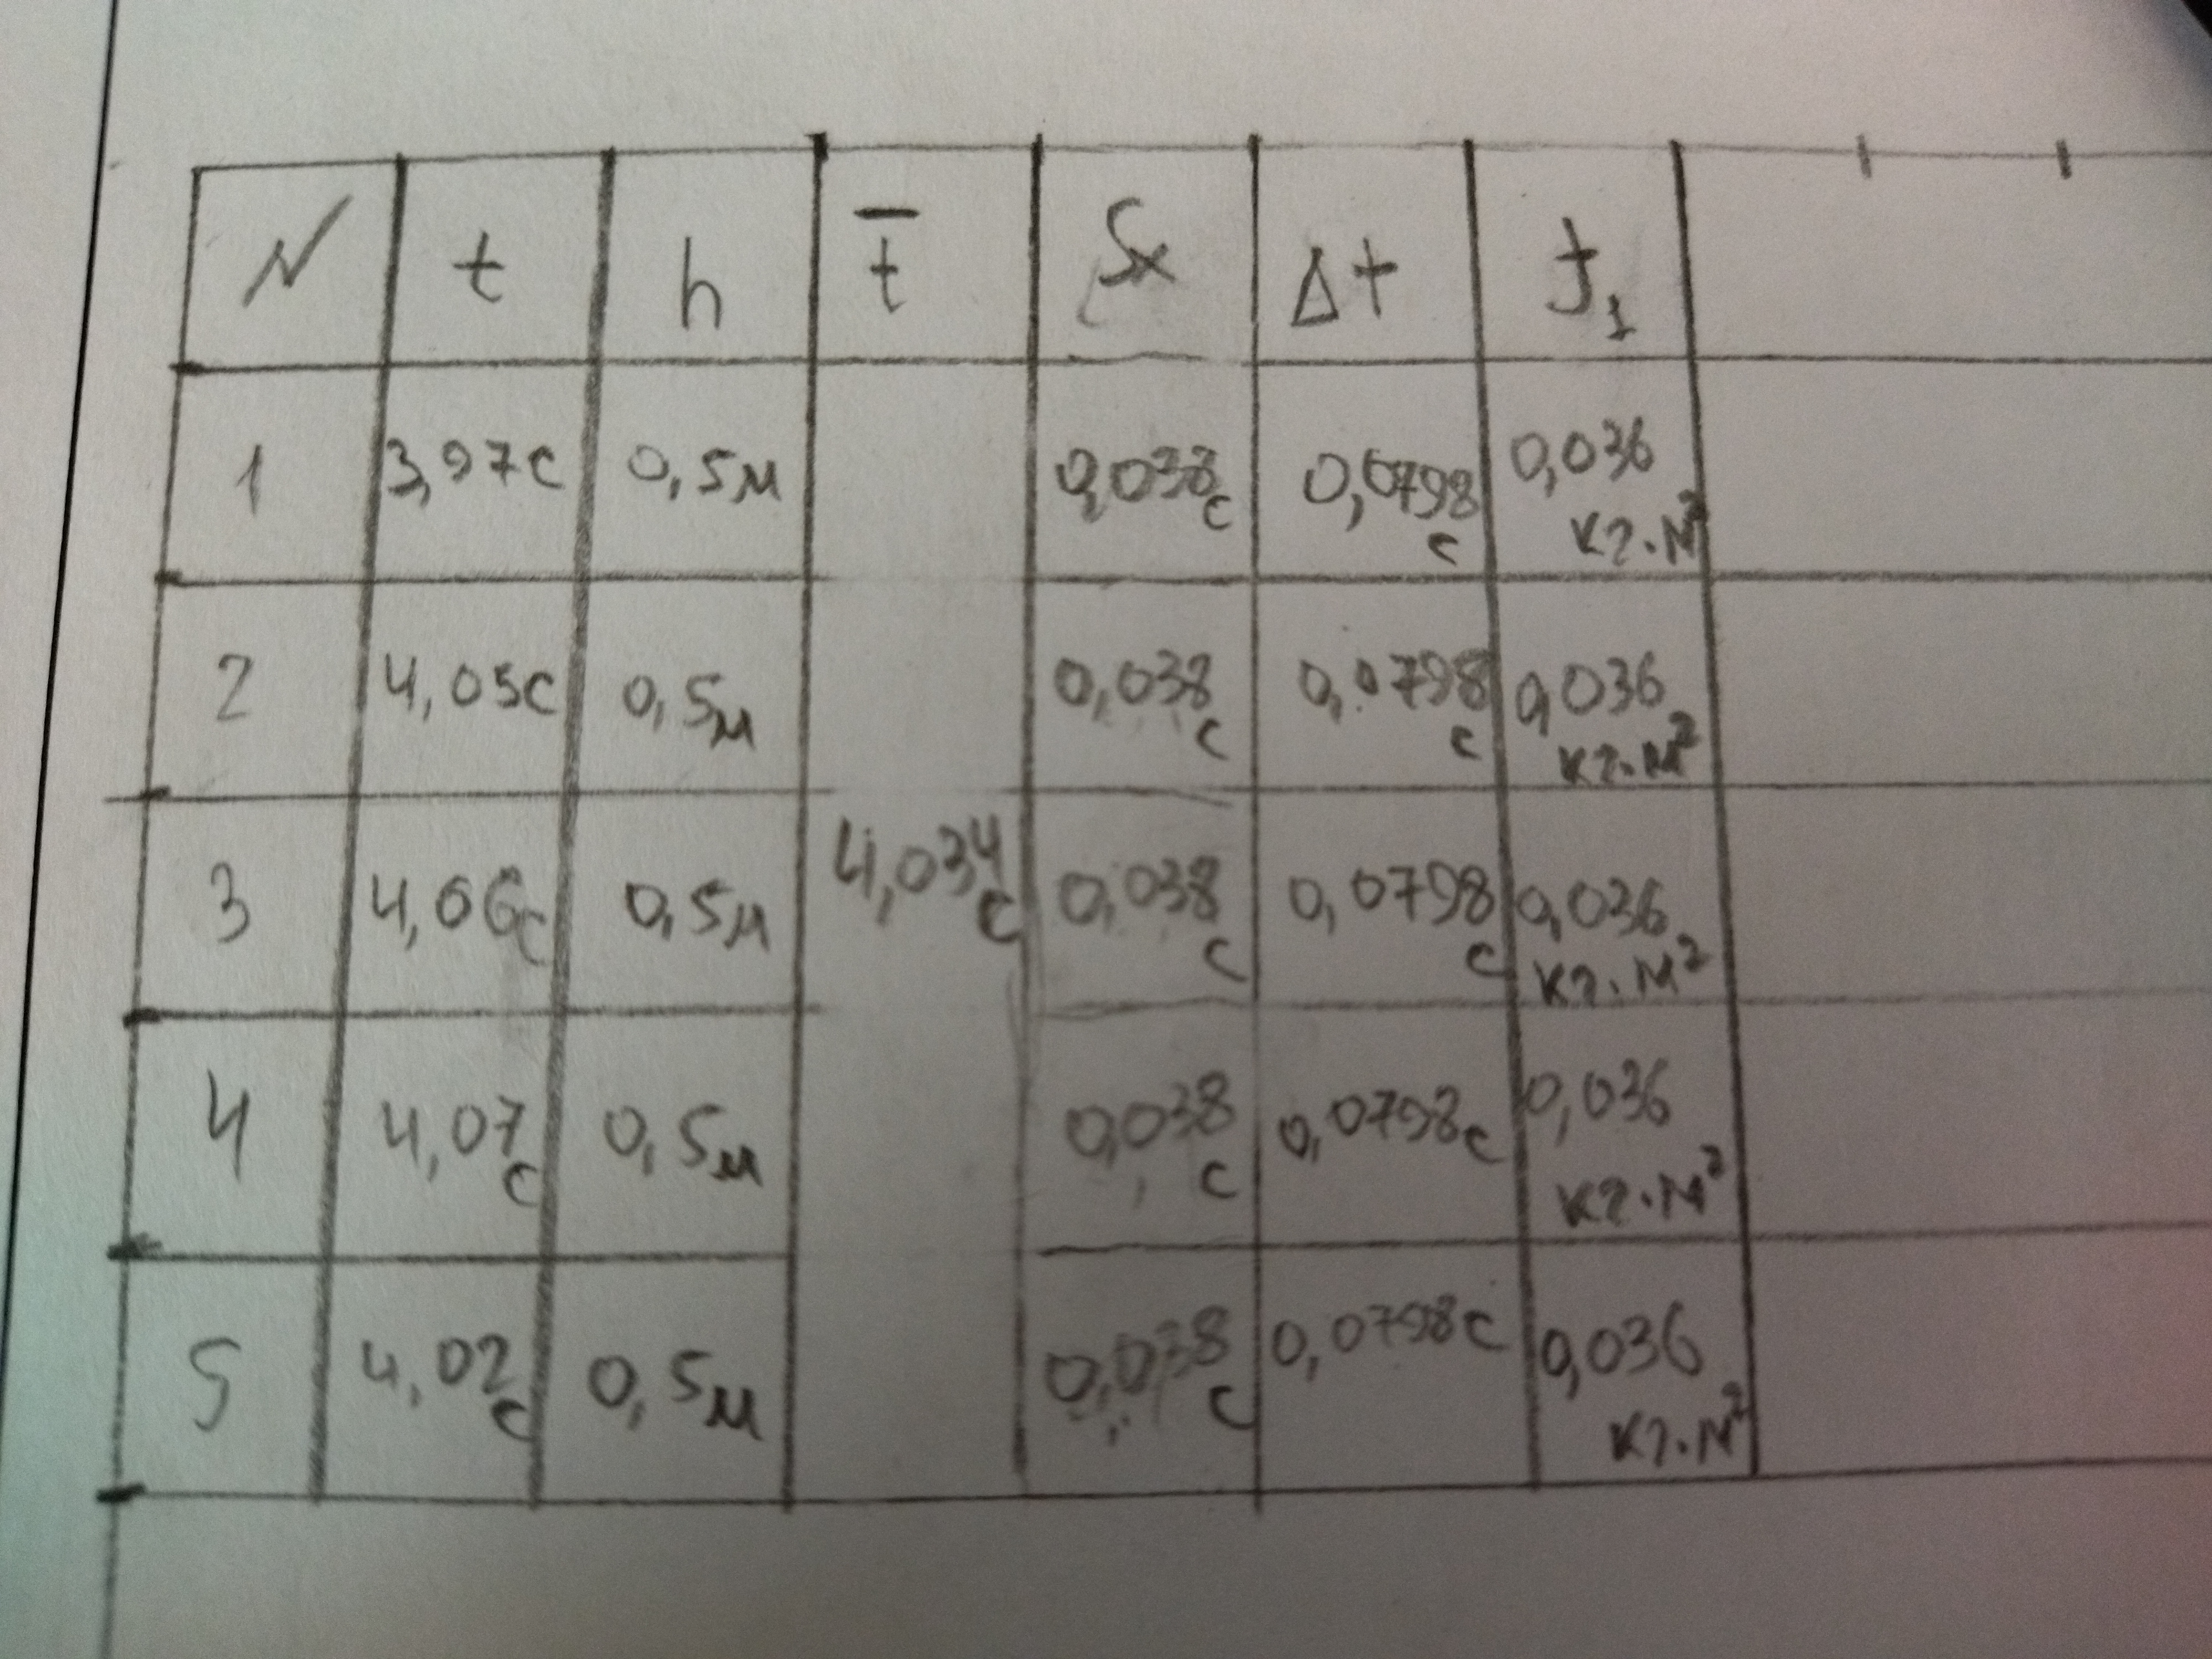 N t h t̄ Sx Δt J₁
1 3,97с 0,5м 0,038с 0,0798с 0,036 кг·м²
2 4,05с 0,5м 0,038с 0,0798с 0,036 кг·м²
3 4,06с 0,5м 4,034с 0,038с 0,0798с 0,036 кг·м²
4 4,07с 0,5м 0,038с 0,0798с 0,036 кг·м²
5 4,02с 0,5м 0,038с 0,0798с 0,036 кг·м²